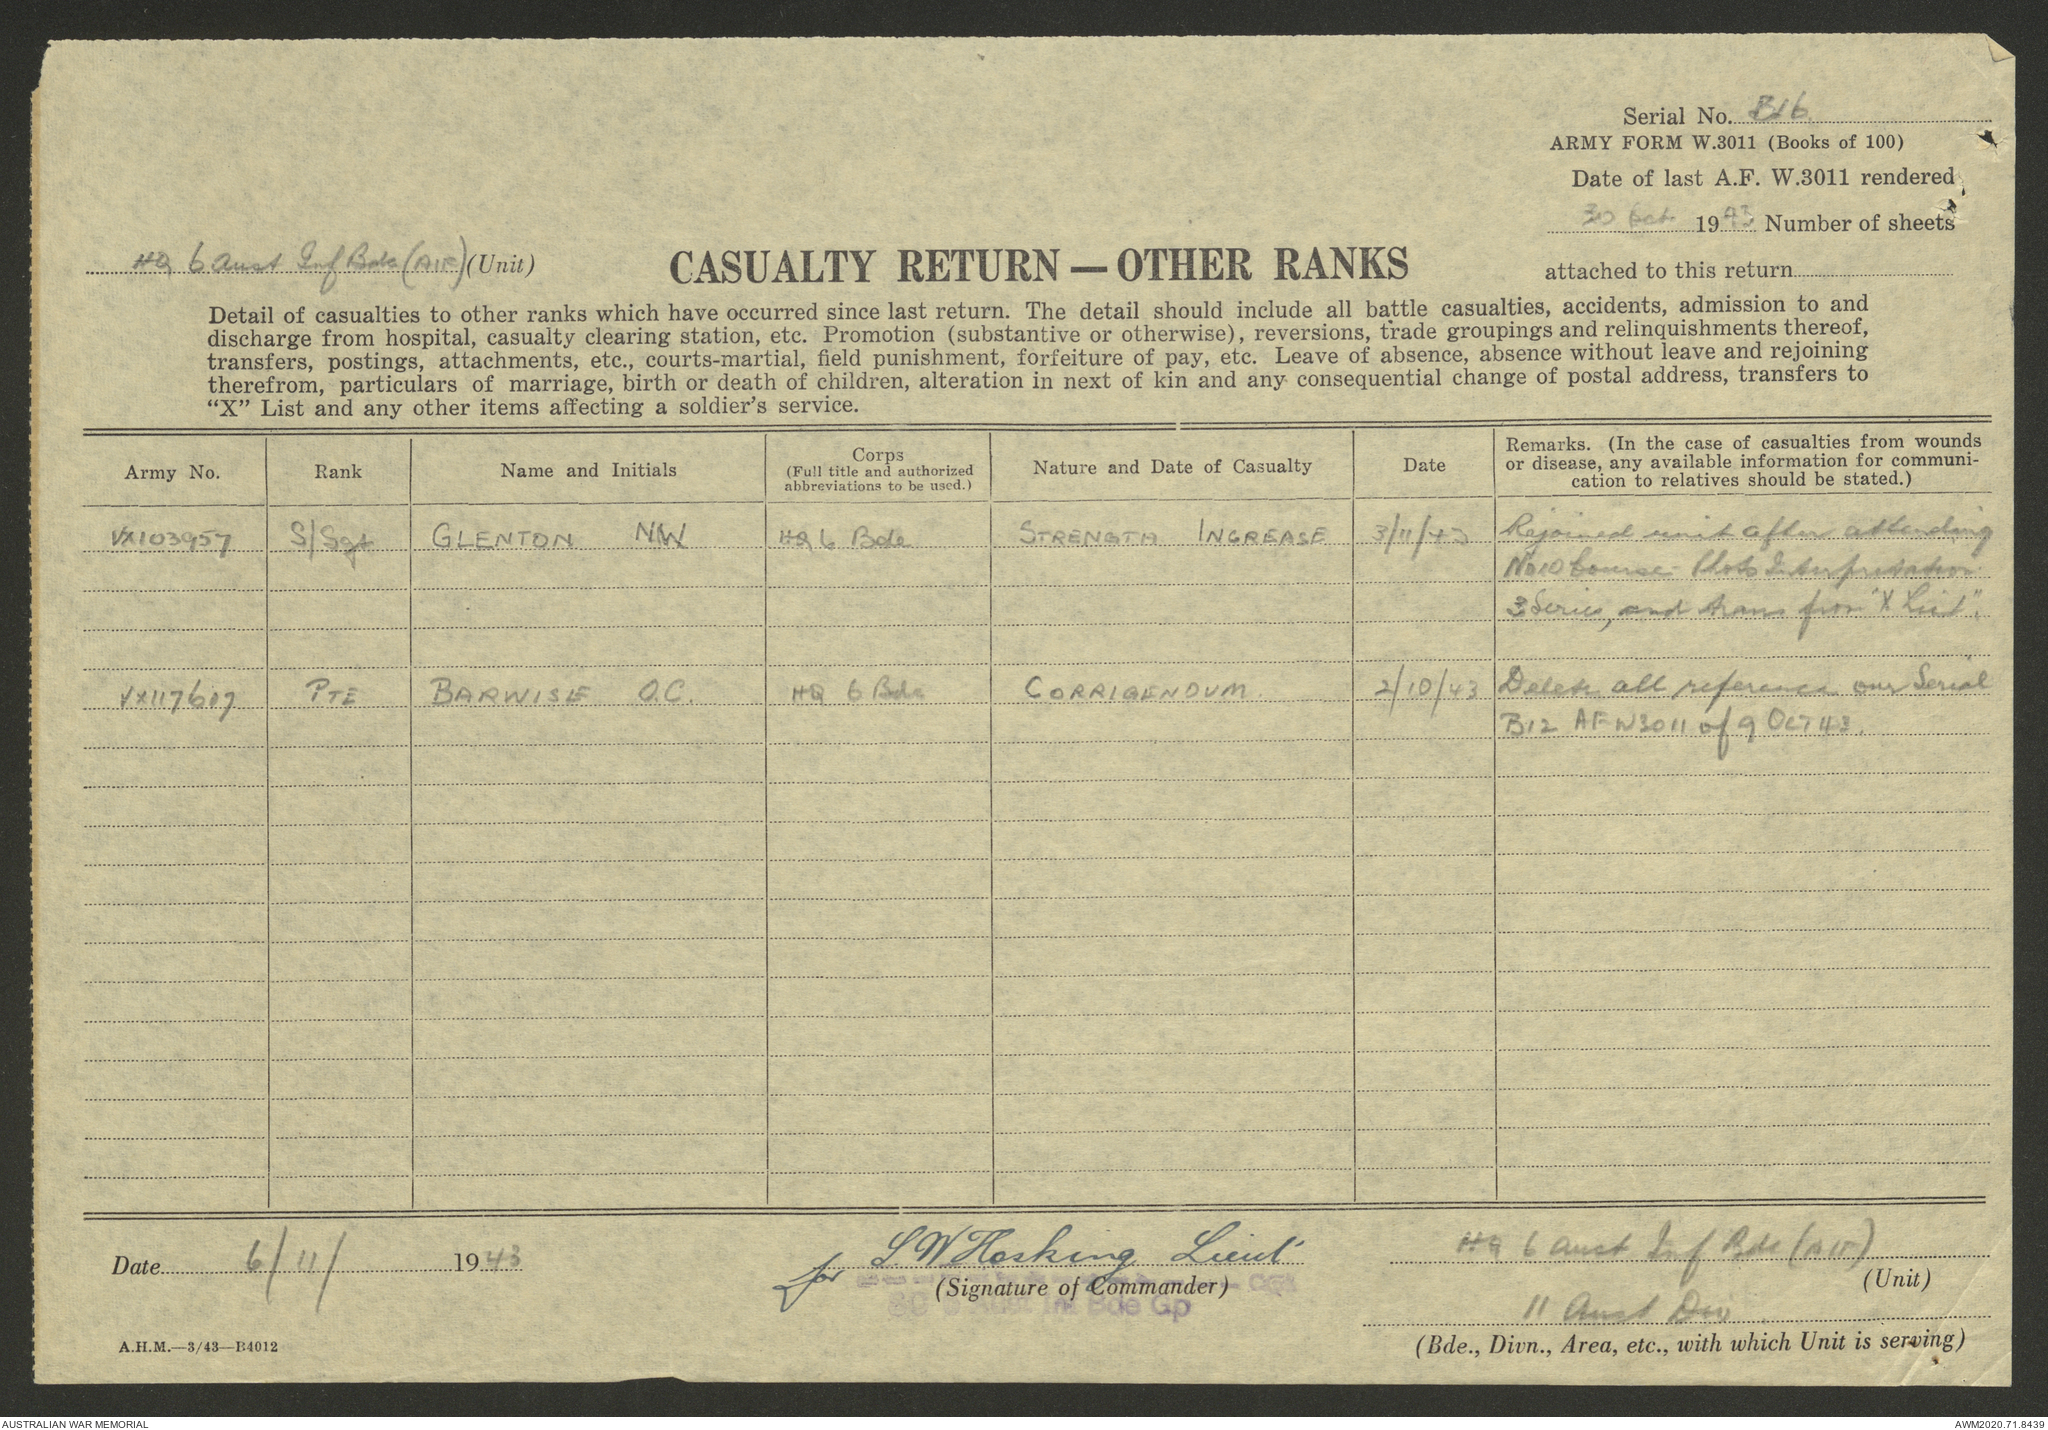 Serial No. B16
ARMY FORM W.3011 (Books of 100)
Date of last A.F. W.3011 rendered
30 Oct. 1943 Number of sheets
attached to this return
HQ 6 Aust Inf Bde (AIF) (Unit)
CASUALTY RETURN — OTHER RANKS
Detail of casualties to other ranks which have occurred since last return. The detail should include all battle casualties, accidents, admission to and
discharge from hospital, casualty clearing station, etc. Promotion (substantive or otherwise), reversions, trade groupings and relinquishments thereof,
transfers, postings, attachments, etc., courts-martial, field punishment, forfeiture of pay, etc. Leave of absence, absence without leave and rejoining
therefrom, particulars of marriage, birth or death of children, alteration in next of kin and any consequential change of postal address, transfers to
“X” List and any other items affecting a soldier’s service.
Army No.
Rank
Name and Initials
Corps
(Full title and authorized
abbreviations to be used.)
Nature and Date of Casualty
Date
Remarks. (In the case of casualties from wounds
or disease, any available information for communi-
cation to relatives should be stated.)
VX103957 S/Sgt GLENTON NW HQ 6 Bde STRENGTH INCREASE 3/11/43 Rejoined unit after attending
No 10 Course Photo Interpretation
3 Series, and trans from "X List".
VX117617 PTE BARWISE O.C. HQ 6 Bde CORRIGENDUM. 2/10/43 Delete all reference our Serial
B12 AF W3011 of 9 OCT 43.
Date 6/11/ 1943
for LW Hosking Lieut
(Signature of Commander)
Aust Inf Bde Gp
HQ 6 Aust Inf Bde (AIF)
(Unit)
11 Aust Div
(Bde., Divn., Area, etc., with which Unit is serving)
A.H.M.—3/43—B4012
AUSTRALIAN WAR MEMORIAL
AWM2020.71.8439